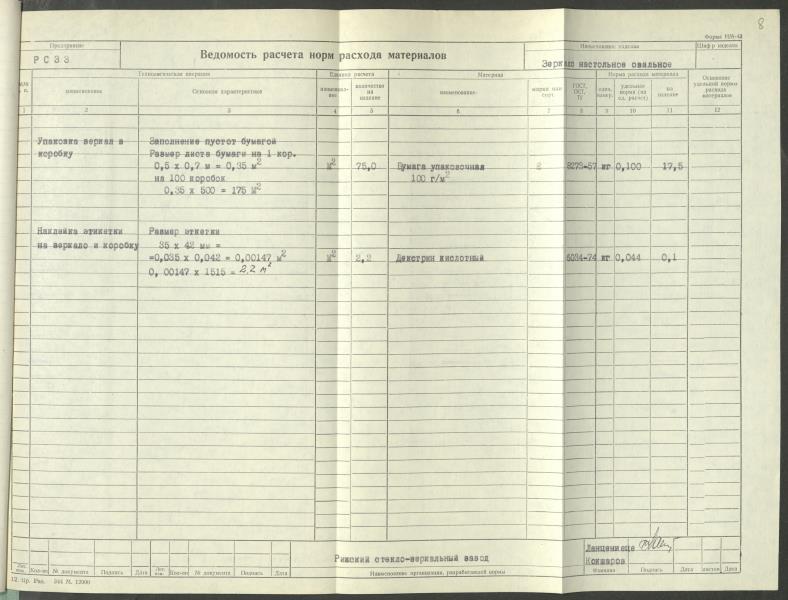 8
Форма Н/К-42
Предприятие
РСЗЗ
Ведомость расчета норм расхода материалов
Наименование изделия
Зеркало настольное овальное
Шифр изделия
Технологическая операция
Единица расчета
Материал
Норма расхода материала
наименование
Основные характеристики
наименова-
ние
количество
на
изделие
наименование
марка или
сорт
ГОСТ,
ОСТ,
ТУ
един.
измер.
удельная
норма (на
ед. расчет)
на
изделие
Основание
удельной нормы
расхода
материалов
1 2 3 4 5 6 7 8 9 10 11 12
Упаковка зеркал в Заполнение пустот бумагой
коробку Размер листа бумаги на 1 кор.
0,5 x 0,7 м = 0,35 м² м² 75,0 Бумага упаковочная 2 8273-57 кг 0,100 17,5
на 100 коробок 100 г/м²
0,35 x 500 = 175 м²
Наклейка этикетки Размер эткетки
на зеркало и коробку 35 x 42 мм =
=0,035 x 0,042 = 0,00147 м² м² 2,2 Декстрин кислотный 6034-74 кг 0,044 0,1
0,00147 x 1515 = 2,2 м²
Рижский стекло-зеркальный завод
Ланцениеце
Кокшаров
Изм. Кол-во № документа Подпись Дата Кол-во № документа Подпись Дата
Наименование организации, разработавшей нормы
Фамилия Подпись Дата листов Дата
12. тip. Рига. 344 М. 12000